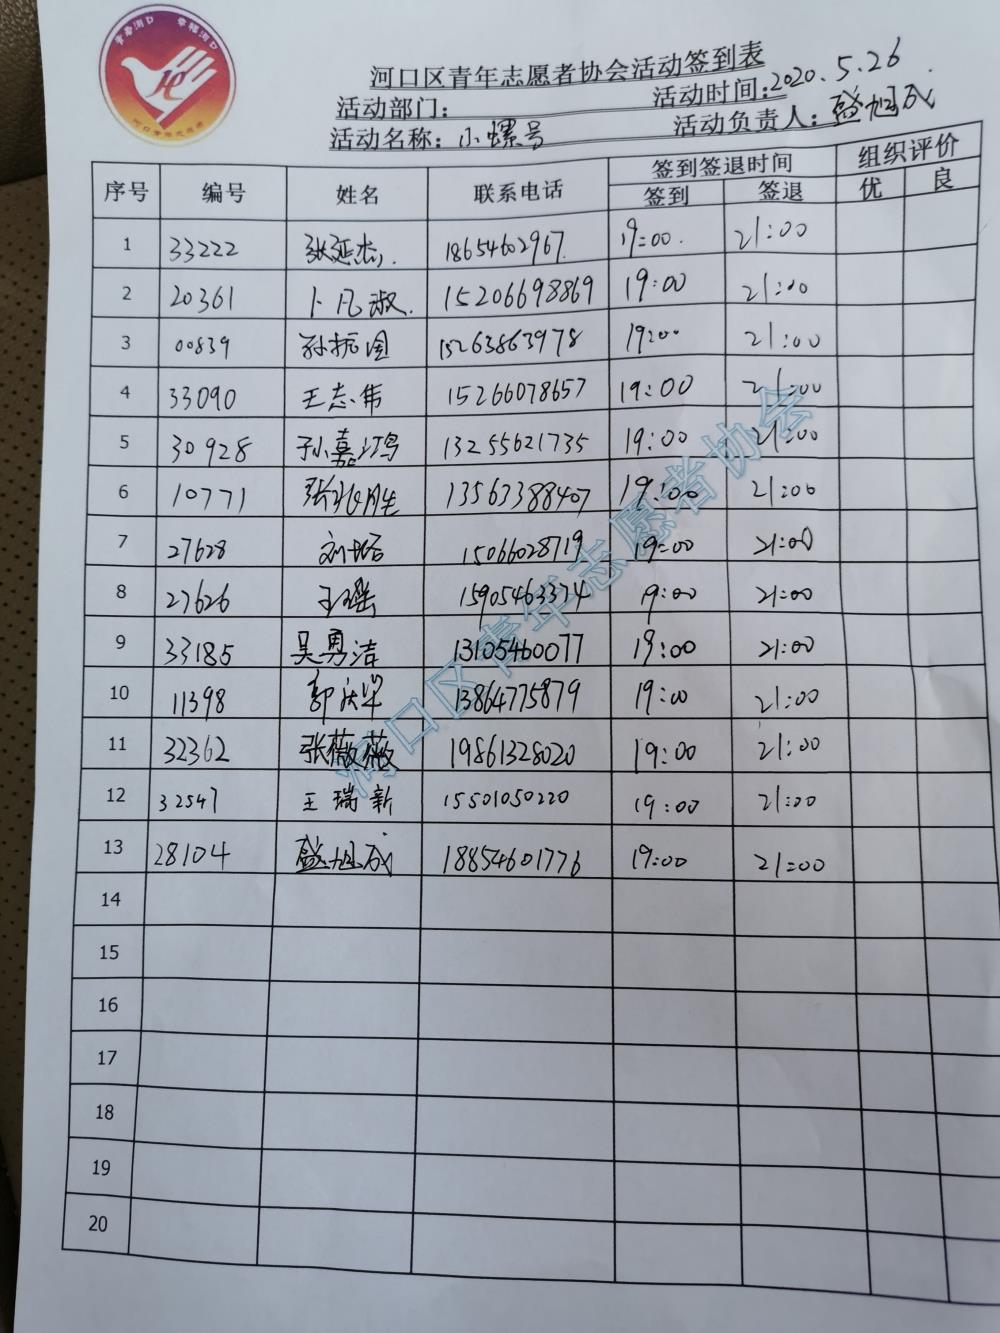 青春河口 幸福河口
河口区青年志愿者协会活动签到表
活动部门: 活动时间:2020.5.26
活动名称:小螺号 活动负责人:盛旭成
序号 编号 姓名 联系电话 签到签退时间 组织评价
签到 签退 优 良
1 33222 张延杰. 18654602967. 19:00. 21:00
2 20361 卜凡淑. 15206698869 19:00 21:00
3 00839 孙振国 15263863978 19:00 21:00
4 33090 王志伟 15266078657 19:00 21:00
5 30928 孙嘉鸿 13255621735 19:00 21:00
6 10771 张 13563388407 19:00 21:00
7 27628 刘 15066028719 19:00 21:00
8 27626 王瑶 15905463374 19:00 21:00
9 33185 吴勇洁 13105460077 19:00 21:00
10 11398 郭庆华 13864775879 19:00 21:00
11 32362 张薇薇 19861328020 19:00 21:00
12 32547 王瑞新 15501050220 19:00 21:00
13 28104 盛旭成 18854601776 19:00 21:00
14
15
16
17
18
19
20
河口区青年志愿者协会